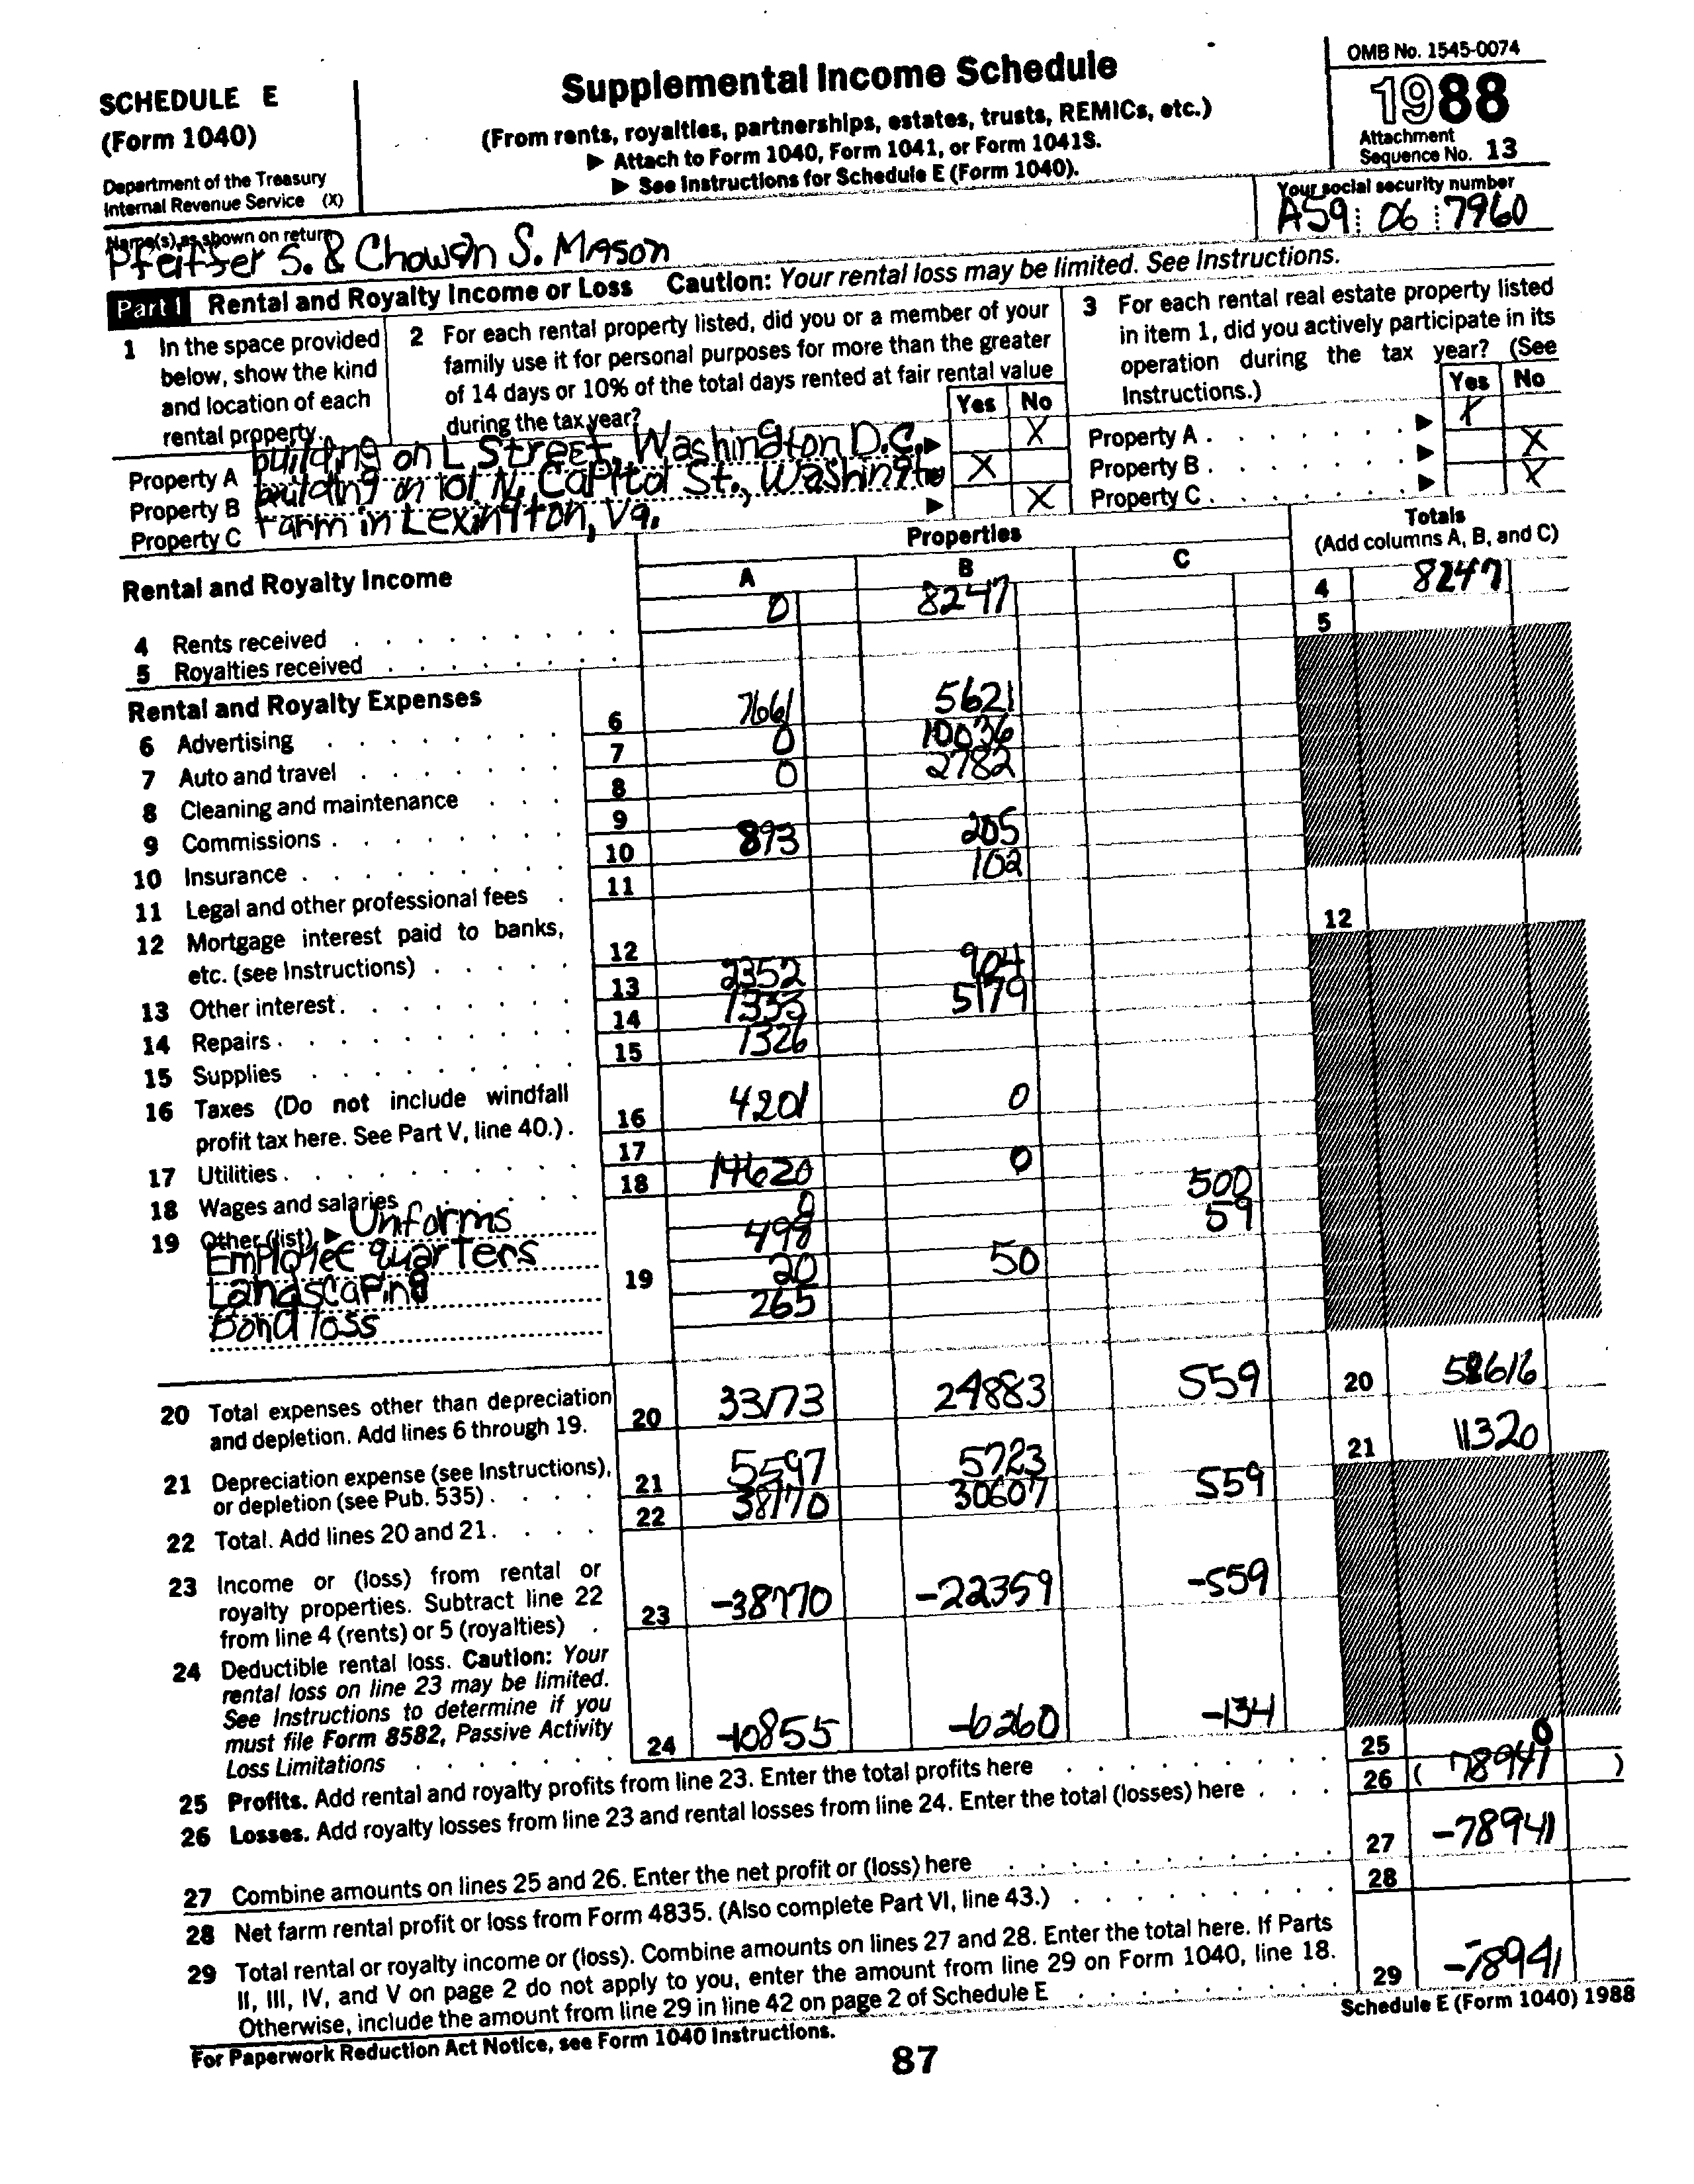 SCHEDULE E
(Form 1040)
Department of the Treasury
Internal Revenue Service (X)
Supplemental Income Schedule
(From rents, royalties, partnerships, estates, trusts, REMICs, etc.)
▶ Attach to Form 1040, Form 1041, or Form 1041S.
▶ See Instructions for Schedule E (Form 1040).
OMB No. 1545-0074
1988
Attachment
Sequence No. 13
Name(s) as shown on return
Pfeiffer S. & Chowan S. Mason
Your social security number
A59 06 7960
Part I Rental and Royalty Income or Loss Caution: Your rental loss may be limited. See Instructions.
1 In the space provided
below, show the kind
and location of each
rental property.
2 For each rental property listed, did you or a member of your
family use it for personal purposes for more than the greater
of 14 days or 10% of the total days rented at fair rental value
during the tax year?
Yes No
3 For each rental real estate property listed
in item 1, did you actively participate in its
operation during the tax year? (See
Instructions.)
Yes No
Property A building on L Street, Washington D.C. ▶ X Property A . . . . . . . ▶ X
Property B building on 101 N. Capitol St., Washington X Property B . . . . . . . ▶ X
Property C Farm in Lexington, Va. ▶ X Property C . . . . . . . ▶ X
Rental and Royalty Income
Properties
A B C
Totals
(Add columns A, B, and C)
4 Rents received . . . . . . . . . 0 8247 4 8247
5 Royalties received . . . . . . . . 5
Rental and Royalty Expenses
6 Advertising . . . . . . . . 6 7661 5621
7 Auto and travel . . . . . . . 7 0 10036
8 Cleaning and maintenance . . . 8 0 2782
9 Commissions . . . . . . . . 9
10 Insurance . . . . . . . . . 10 893 205
11 Legal and other professional fees . 11 102
12 Mortgage interest paid to banks,
etc. (see Instructions) . . . . . 12 12
13 Other interest . . . . . . . . 13 2352 904
14 Repairs . . . . . . . . . . 14 1333 5179
15 Supplies . . . . . . . . . 15 1326
16 Taxes (Do not include windfall
profit tax here. See Part V, line 40.) . 16 4201 0
17 Utilities . . . . . . . . . . 17
18 Wages and salaries . . . . . . 18 14620 0
19 Other (list) ▶ Uniforms 0 500
Employee quarters 498 59
Landscaping 19 20 50
Bond loss 265
20 Total expenses other than depreciation
and depletion. Add lines 6 through 19. 20 33173 24883 559 20 58616
21 Depreciation expense (see Instructions),
or depletion (see Pub. 535) . . . . 21 5597 5723 21 11320
22 Total. Add lines 20 and 21 . . . . 22 38770 30607 559
23 Income or (loss) from rental or
royalty properties. Subtract line 22
from line 4 (rents) or 5 (royalties) . 23 -38770 -22359 -559
24 Deductible rental loss. Caution: Your
rental loss on line 23 may be limited.
See Instructions to determine if you
must file Form 8582, Passive Activity
Loss Limitations . . . . . . . 24 -10855 -6260 -134
25 Profits. Add rental and royalty profits from line 23. Enter the total profits here . . . . . . . . 25 0
26 Losses. Add royalty losses from line 23 and rental losses from line 24. Enter the total (losses) here . . . 26 ( 78941 )
27 Combine amounts on lines 25 and 26. Enter the net profit or (loss) here . . . . . . . . . . 27 -78941
28 Net farm rental profit or loss from Form 4835. (Also complete Part VI, line 43.) . . . . . . . . 28
29 Total rental or royalty income or (loss). Combine amounts on lines 27 and 28. Enter the total here. If Parts
II, III, IV, and V on page 2 do not apply to you, enter the amount from line 29 on Form 1040, line 18.
Otherwise, include the amount from line 29 in line 42 on page 2 of Schedule E . . . . . . . . 29 -78941
For Paperwork Reduction Act Notice, see Form 1040 Instructions.
Schedule E (Form 1040) 1988
87